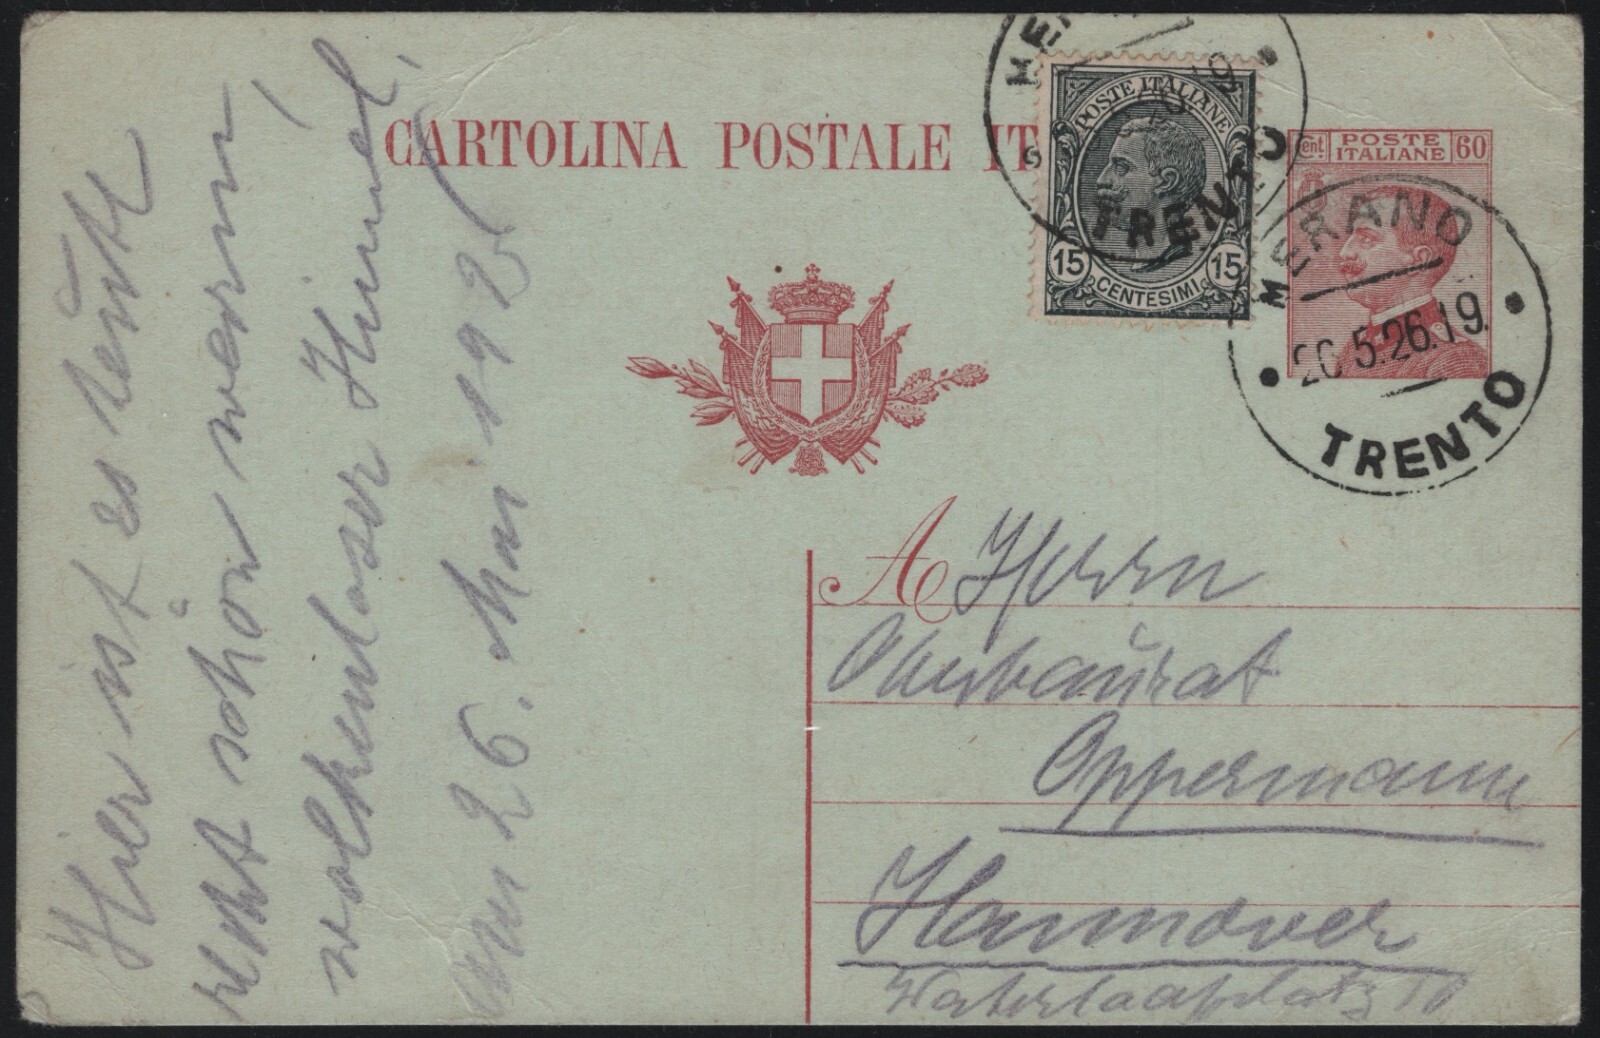 CARTOLINA POSTALE IT
POSTE ITALIANE
15 15
CENTESIMI
Cent POSTE ITALIANE 60
MERANO
19
TRENTO
MERANO
26.5.26.19.
TRENTO
Hier ist es heute
recht schön warm!
wolkenloser Himmel,
am 26. Mai 192
A Herrn
Oberbaurat
Oppermann
Hannover
Waterlooplatz